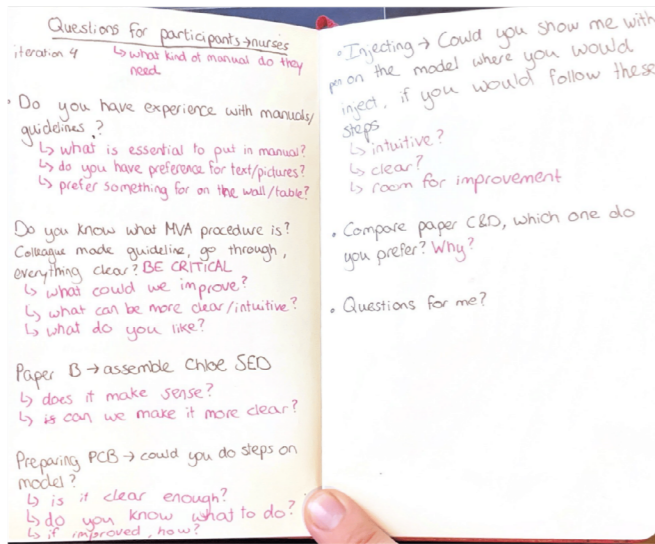 Questions for participants→nurses
iteration 4 ↳what kind of manual do they
need
• Do you have experience with manuals/
guidelines?
↳ what is essential to put in manual?
↳ do you have preference for text/pictures?
↳ prefer something for on the wall/table?
Do you know what MVA procedure is?
Colleague made guideline, go through,
everything clear? BE CRITICAL
↳ what could we improve?
↳ what can be more clear/intuitive?
↳ what do you like?
Paper B → assemble Chloe SED
↳ does it make sense?
↳ is can we make it more clear?
Preparing PCB → could you do steps on
model?
↳ is it clear enough?
↳ do you know what to do?
↳ if improved, how?
• Injecting → Could you show me with
pen on the model where you would
inject, if you would follow these
steps
↳ intuitive?
↳ clear?
↳ room for improvement
• Compare paper C&D, which one do
you prefer? Why?
• Questions for me?